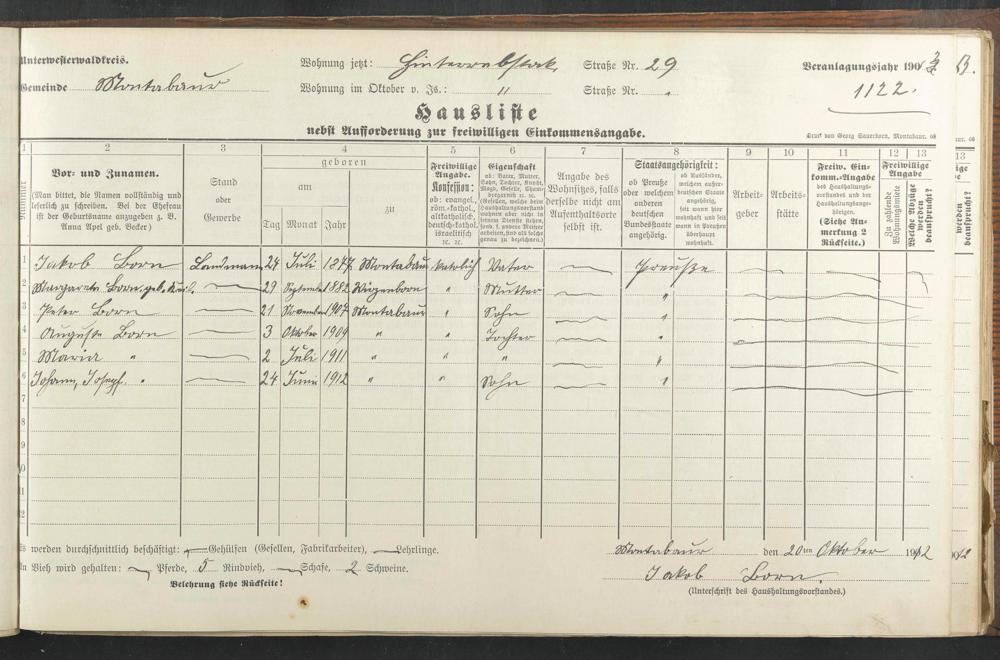 Unterwesterwaldkreis.
Gemeinde Montabaur
Wohnung jetzt: Straße Nr. 29
Wohnung im Oktober v. Js.: " Straße Nr. "
Veranlagungsjahr 190
1122.
Hausliste
nebst Aufforderung zur freiwilligen Einkommensangabe.
Druck von Georg Sauerborn, Montabaur. 68
1 2 3 4 5 6 7 8 9 10 11 12 13
Nummer
Vor- und Zunamen.
(Man bittet, die Namen vollständig und
leserlich zu schreiben. Bei der Ehefrau
ist der Geburtsname anzugeben z. B.
Anna Apel geb. Becker)
Stand
oder
Gewerbe
geboren
am
Tag Monat Jahr
zu
Freiwillige
Angabe.
Konfession:
ob: evangel.,
röm.-kathol.,
altkatholisch,
deutsch-kathol.,
israelitisch
rc. rc.
Eigenschaft
ob: Vater, Mutter,
Sohn, Tochter, Knecht,
Magd, Geselle,
(Gesellen, welche beim
Haushaltungsvorstand
wohnen aber nicht in
seinem Dienste stehen,
sind als solche
genau zu bezeichnen.)
Angabe des
Wohnsitzes, falls
derselbe nicht am
Aufenthaltsorte
selbst ist.
Staatsangehörigkeit:
ob Preuße
oder welchem
anderen
deutschen
Bundesstaate
angehörig.
ob Ausländer,
welchem außer-
deutschen Staate
angehörig,
seit wann hier
wohnhaft und seit
wann in Preußen
überhaupt
wohnhaft.
Arbeit-
geber
Arbeits-
stätte
Freiw. Ein-
komm.-Angabe
des Haushaltungs-
vorstandes und der
Haushaltungsange-
hörigen.
(Siehe An-
merkung 2
Rückseite.)
Freiwillige
Angabe
Zu zahlende
Wohnungsmiete
Welche Abzüge
werden
beansprucht?
1 Jakob Born Landmann 24 Juli 1877 Montabaur katolisch Vater Preuße
2 Margareta Born geb. 29 September 1882 Wirzenborn " Mutter "
3 Peter Born 21 November 1907 Montabaur " Sohn "
4 Auguste Born 3 Oktober 1909 " " Tochter "
5 Maria " 2 Juli 1911 " " " "
6 Johann, Josepf. " 24 Juni 1912 " " Sohn "
7
8
9
10
11
12
Es werden durchschnittlich beschäftigt: Gehülfen (Gesellen, Fabrikarbeiter), Lehrlinge.
An Vieh wird gehalten: Pferde, 5 Rindvieh, Schafe, 2 Schweine.
Belehrung siehe Rückseite!
Montabaur den 20ten Oktober 1912
Jakob Born.
(Unterschrift des Haushaltungsvorstandes.)